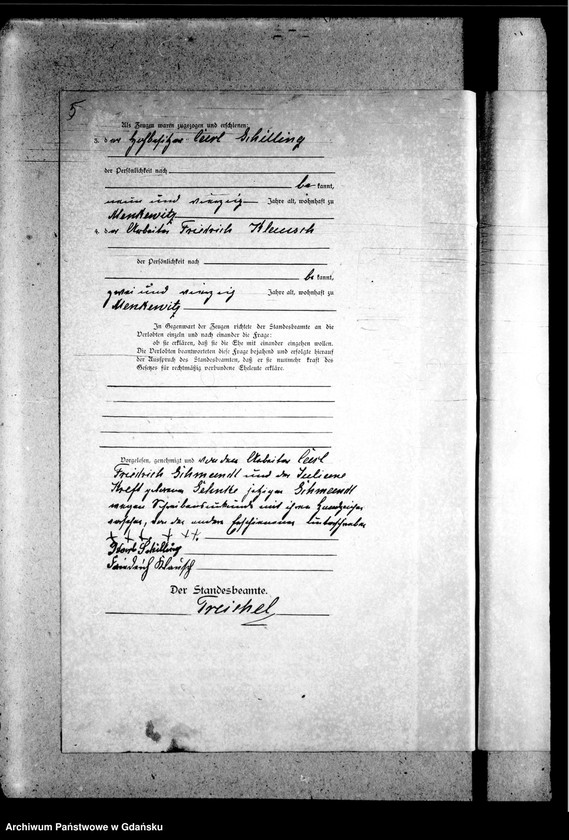 5
Als Zeugen waren zugezogen und erschienen:
3. der Hofbesitzer Carl Schilling
der Persönlichkeit nach
be kannt,
neun und vierzig Jahre alt, wohnhaft zu
Menkewitz
4. der Arbeiter Friedrich Klausch
der Persönlichkeit nach
be kannt,
zwei und vierzig Jahre alt, wohnhaft zu
Menkewitz
In Gegenwart der Zeugen richtete der Standesbeamte an die
Verlobten einzeln und nach einander die Frage:
ob sie erklären, daß sie die Ehe mit einander eingehen wollen.
Die Verlobten beantworteten diese Frage bejahend und erfolgte hierauf
der Ausspruch des Standesbeamten, daß er sie nunmehr kraft des
Gesetzes für rechtmäßig verbundene Eheleute erkläre.
Vorgelesen, genehmigt und von dem Arbeiter Carl
Friedrich Schmandt und der Juliane
Kreft geborenen jetzigen Schmandt
wegen Schreibensunkunde mit ihren Handzeichen
versehen, von den andern Erschienenen unterschrieben
+ + + + + +
Carl Schilling
Friedrich Klausch
Der Standesbeamte.
Treichel
Archiwum Państwowe w Gdańsku